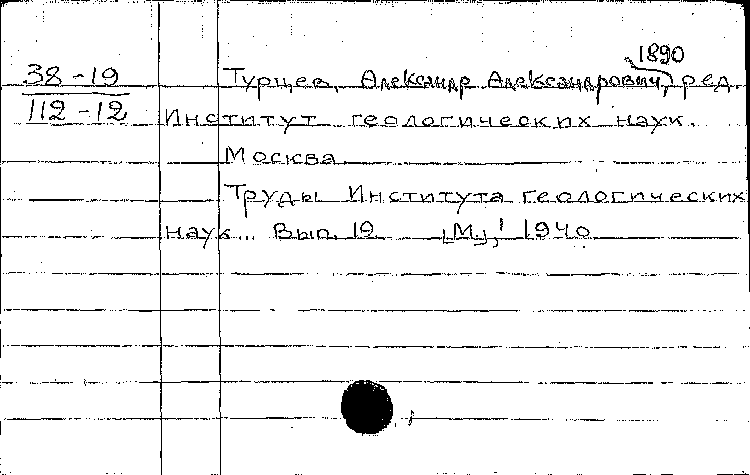 1890
38-19
112-12
Турцев, Александр Александрович, ред.
Институт геологических наук.
Москва.
Труды Института геологических
наук... Вып. 19 [М.], 1940